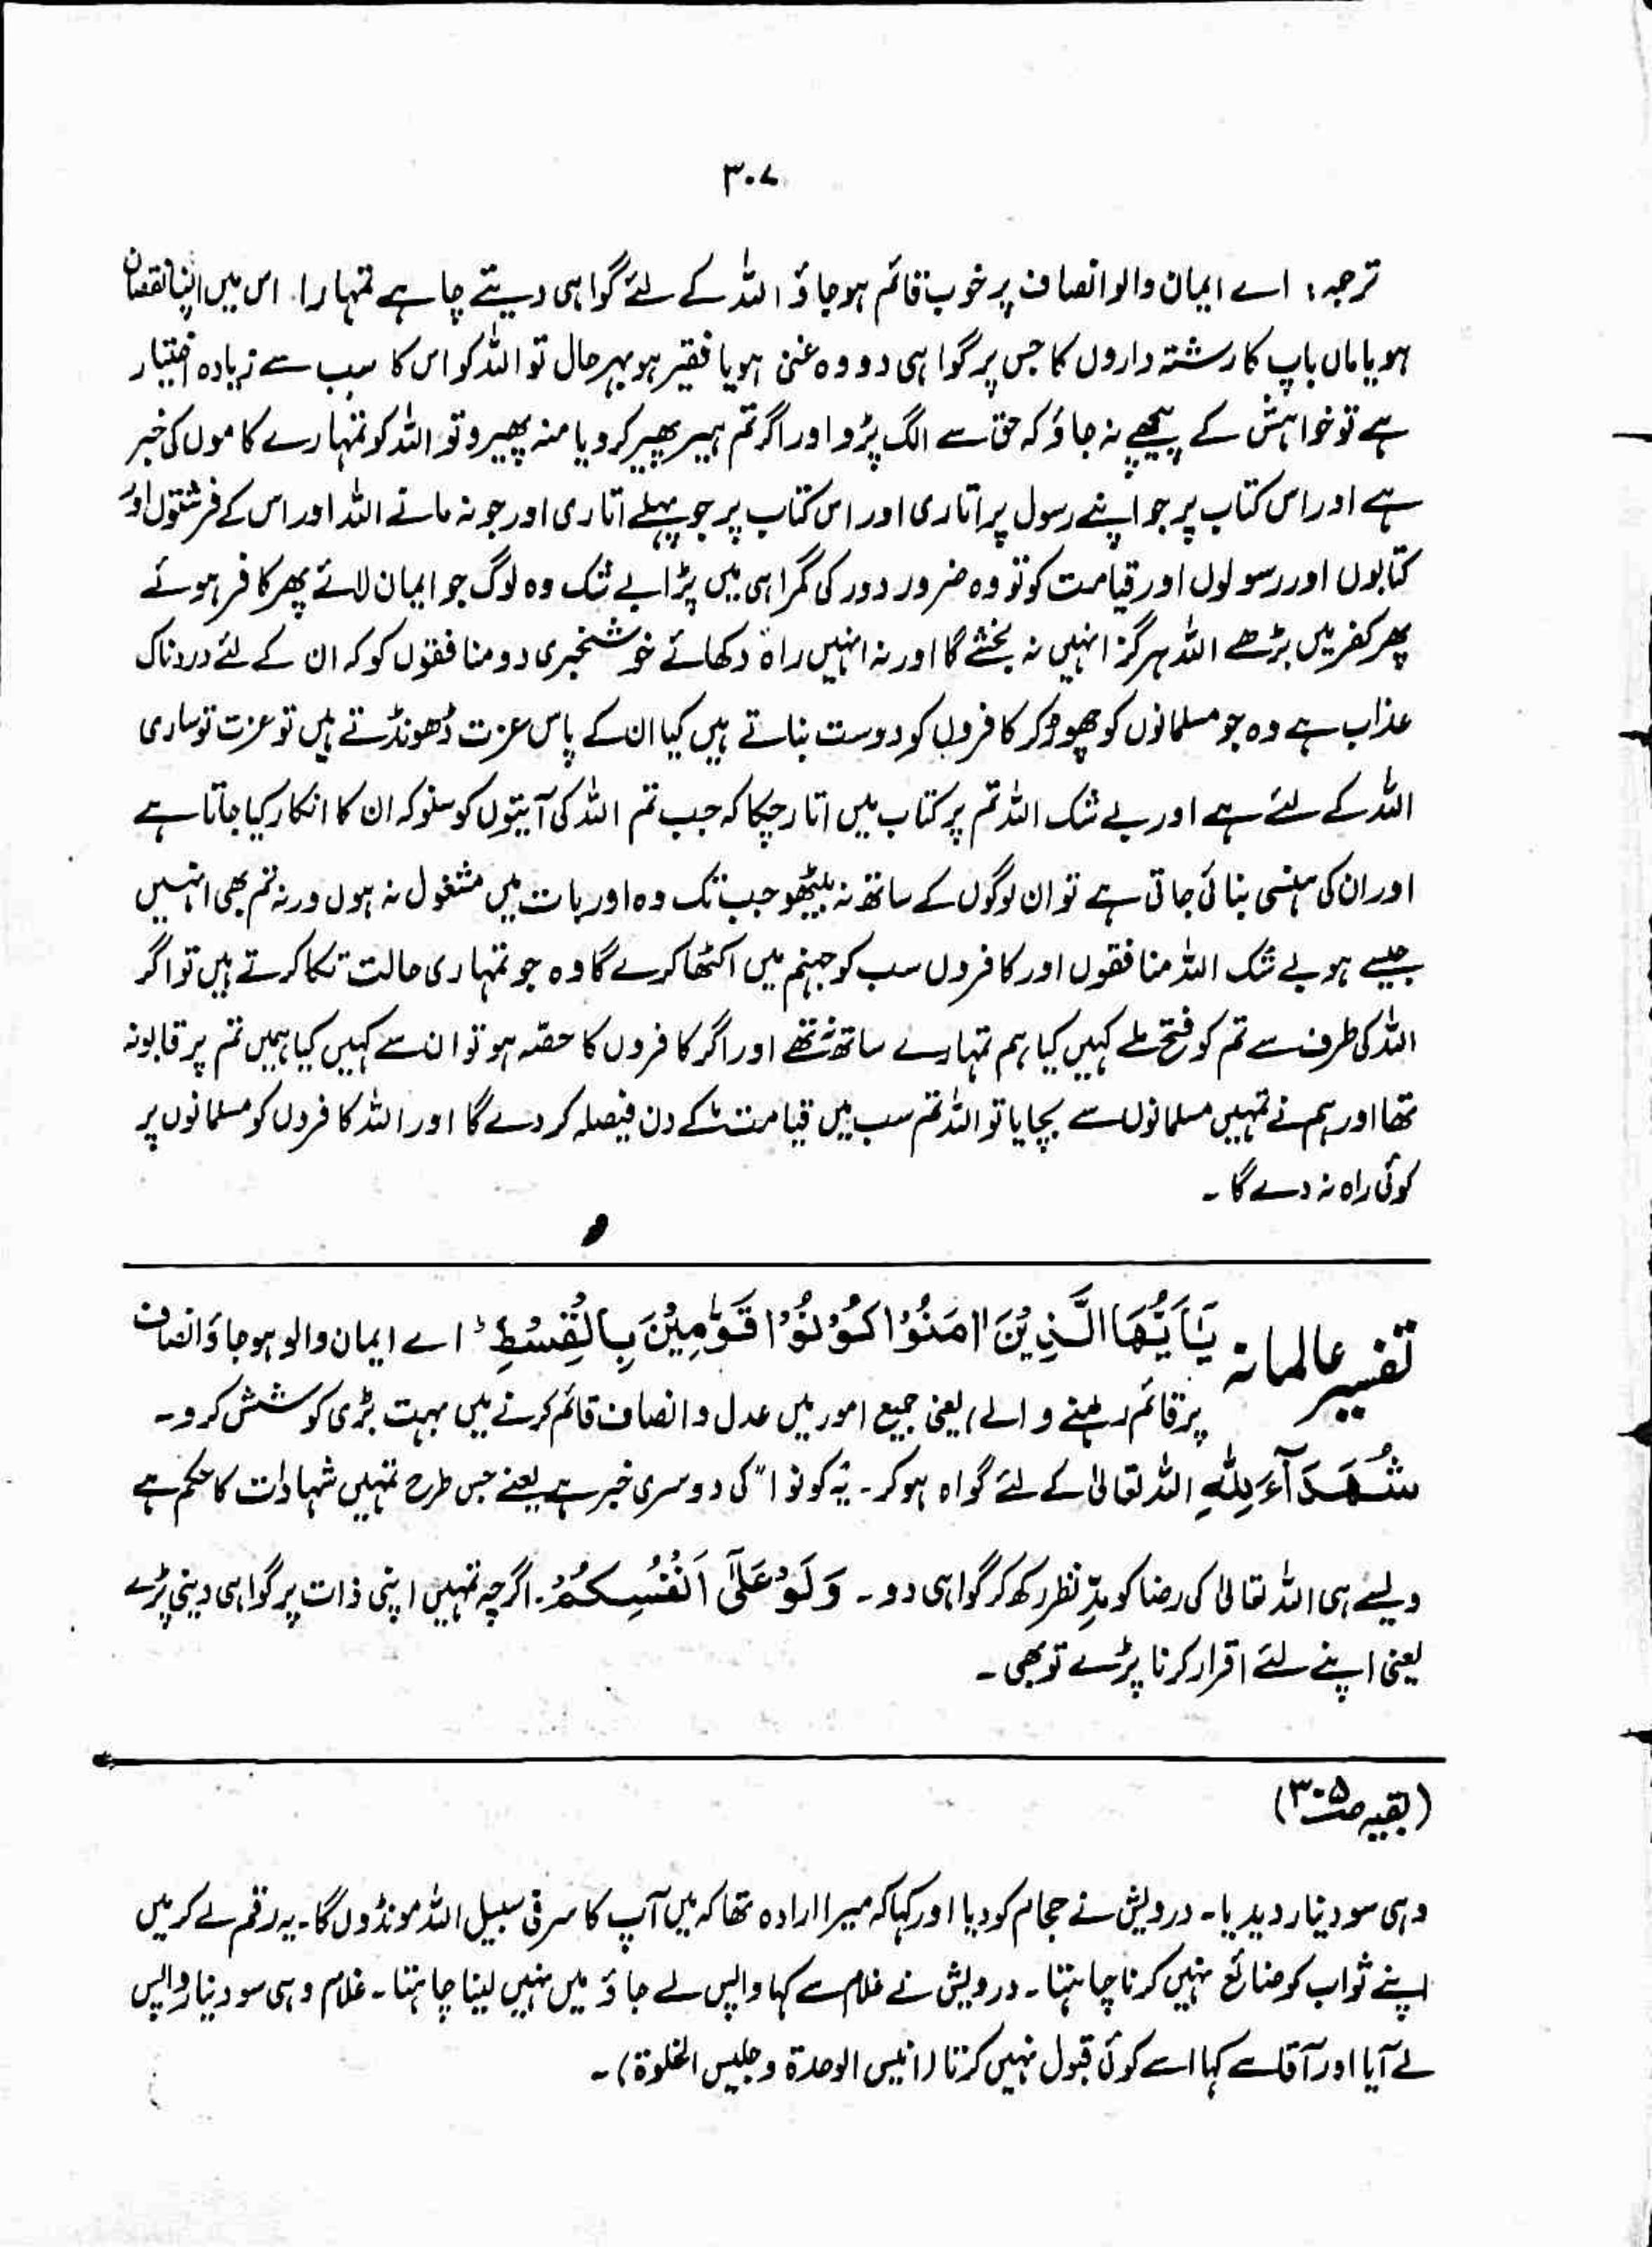 ۳۰۷
ترجمہ: اے ایمان والو انصاف پر خوب قائم ہو جاؤ اللہ کے لئے گواہی دیتے چاہے تمہارا اس میں اپنا نقصان
ہو یا ماں باپ کا رشتہ داروں کا جس پر گواہی دو وہ غنی ہو یا فقیر ہو بہرحال تو اللہ کو اس کا سب سے زیادہ اختیار
ہے تو خواہش کے پیچھے نہ جاؤ کہ حق سے الگ پڑو اور اگر تم ہیر پھیر کرو یا منہ پھیرو تو اللہ کو تمہارے کاموں کی خبر
ہے اور اس کتاب پر جو اپنے رسول پر اتاری اور اس کتاب پر جو پہلے اتاری اور جو نہ مانے اللہ اور اس کے فرشتوں اور
کتابوں اور رسولوں اور قیامت کو تو وہ ضرور دور کی گمراہی میں پڑا بے شک وہ لوگ جو ایمان لائے پھر کافر ہوئے
پھر کفر میں بڑھے اللہ ہرگز انہیں نہ بخشے گا اور نہ انہیں راہ دکھائے خوشخبری دو منافقوں کو کہ ان کے لئے دردناک
عذاب ہے وہ جو مسلمانوں کو چھوڑ کر کافروں کو دوست بناتے ہیں کیا ان کے پاس عزت ڈھونڈتے ہیں تو عزت تو ساری
اللہ کے لئے ہے اور بے شک اللہ تم پر کتاب میں اتار چکا کہ جب تم اللہ کی آیتوں کو سنو کہ ان کا انکار کیا جاتا ہے
اور ان کی ہنسی بنائی جاتی ہے تو ان لوگوں کے ساتھ نہ بیٹھو جب تک وہ اور بات میں مشغول نہ ہوں ورنہ تم بھی انہیں
جیسے ہو بے شک اللہ منافقوں اور کافروں سب کو جہنم میں اکٹھا کرے گا وہ جو تمہاری حالت تکا کرتے ہیں تو اگر
اللہ کی طرف سے تم کو فتح ملے کہیں کیا ہم تمہارے ساتھ نہ تھے اور اگر کافروں کا حصہ ہو تو ان سے کہیں کیا ہمیں تم پر قابو نہ
تھا اور ہم نے تمہیں مسلمانوں سے بچایا تو اللہ تم سب میں قیامت کے دن فیصلہ کر دے گا اور اللہ کافروں کو مسلمانوں پر
کوئی راہ نہ دے گا ۔
تفسیر عالمانہ یٰۤاَیُّهَا الَّذِیْنَ اٰمَنُوْا كُوْنُوْا قَوّٰمِیْنَ بِالْقِسْطِ اے ایمان والو ہو جاؤ انصاف
پر قائم رہنے والے، یعنی جمیع امور میں عدل و انصاف قائم کرنے میں بہت بڑی کوشش کرو۔
شُهَدَآءَ لِلّٰهِ اللہ تعالیٰ کے لئے گواہ ہو کر۔ یہ کونوا" کی دوسری خبر ہے یعنی جس طرح تمہیں شہادات کا حکم ہے
ویسے ہی اللہ تعالیٰ کی رضا کو مدِّ نظر رکھ کر گواہی دو۔ وَلَوْ عَلٰۤى اَنْفُسِكُمْ. اگرچہ تمہیں اپنی ذات پر گواہی دینی پڑے
یعنی اپنے لئے اقرار کرنا پڑے تو بھی ۔
(بقیہ صـ ۳۰۵)
وہی سو دینار دیدیا۔ درویش نے حجام کو دیا اور کہا کہ میرا ارادہ تھا کہ میں آپ کا سر فی سبیل اللہ مونڈوں گا۔ یہ رقم لے کر میں
اپنے ثواب کو ضائع نہیں کرنا چاہتا۔ درویش نے غلام سے کہا واپس لے جاؤ میں نہیں لینا چاہتا۔ غلام وہی سو دینار واپس
لے آیا اور آقا سے کہا اسے کوئی قبول نہیں کرتا (انیس الوحدۃ وجلیس الخلوۃ)۔